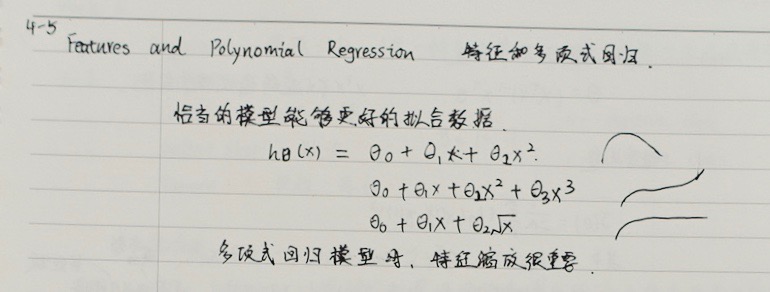 4-5
Features and Polynomial Regression 特征和多项式回归.
恰当的模型能够更好的拟合数据.
hθ(x) = θ0 + θ1x + θ2x².
θ0 + θ1x + θ2x² + θ3x³
θ0 + θ1x + θ2√x
多项式回归模型时, 特征缩放很重要.